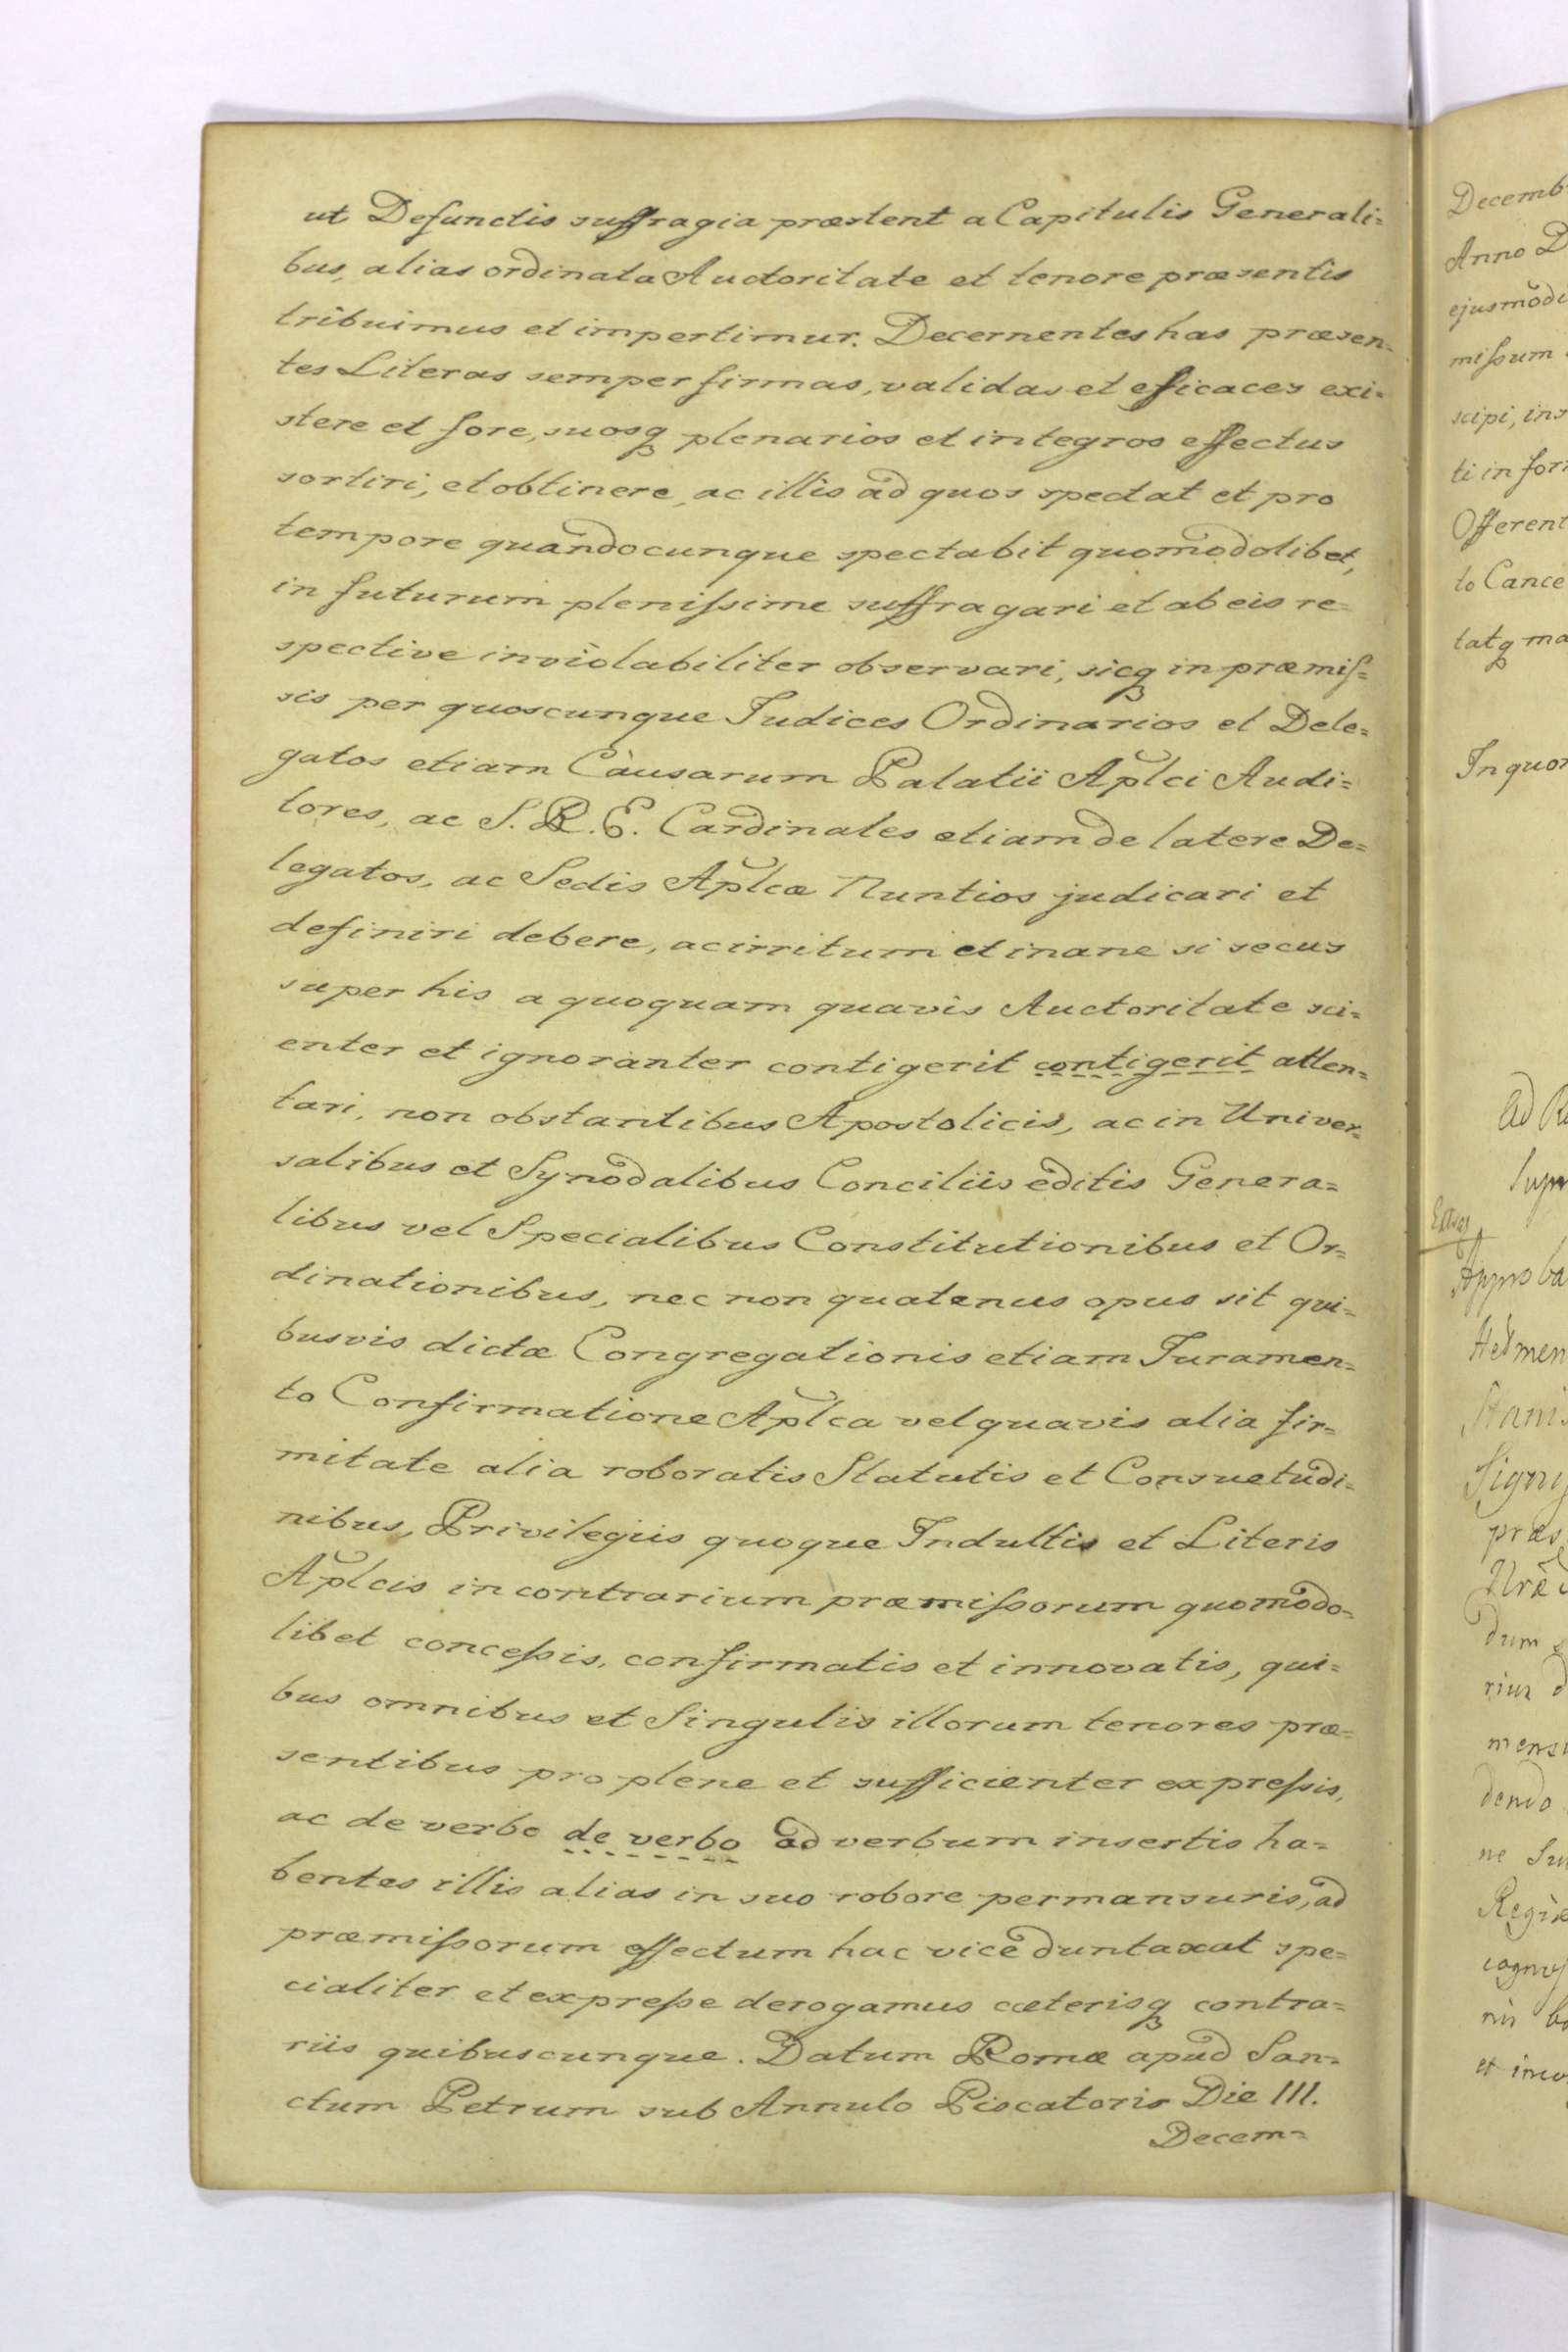 ut Defunctis suffragia præstent a Capitulis Generali=
bus, alias ordinata Auctoritate et tenore præsentis
tribuimus et impertimur. Decernentes has præsen=
tes Literas semper firmas, validas et eficaces exi=
stere et fore, suosq plenarios et integros effectus
sortiri, et obtinere, ac illis ad quos spectat et pro
tempore quandocunque spectabit quomodolibet,
in futurum plenissime suffragari et ab eis re=
spective inviolabiliter observari, sicq in præmis=
sis per quoscunque Judices Ordinarios et Dele=
gatos etiam Causarum Palatii Aplci Audi=
tores, ac S. R. E. Cardinales etiam de latere De=
legatos, ac Sedis Aplcæ Nuntios judicari et
definiri debere, ac irritum et inane si secus
super his a quoquam quavis Auctoritate sci=
enter et ignoranter contigerit contigerit atten=
tari, non obstantibus Apostolicis, ac in Univer=
salibus et Synodalibus Conciliis editis Genera=
libus vel Specialibus Constitutionibus et Or=
dinationibus, nec non quatenus opus sit qui=
busvis dictæ Congregationis etiam Juramen=
to Confirmatione Aplca vel quavis alia fir=
mitate alia roboratis Statutis et Consuetudi=
nibus, Privilegiis quoque Indultis et Literis
Aplcis in contrarium præmissorum quomodo=
libet concessis, confirmatis et innovatis, qui=
bus omnibus et Singulis illorum tenores præ=
sentibus pro plene et sufficienter expressis,
ac de verbo de verbo ad verbum insertis ha=
bentes illis alias in suo robore permansuris, ad
præmissorum effectum hac vice duntaxat spe=
cialiter et expresse derogamus cæterisq contra=
riis quibuscunque. Datum Romæ apud San=
ctum Petrum sub Annulo Piscatoris Die III.
Decem=
Decemb
Anno D
ejusmodi
missum
scipi, ins
ti in for
Offerent
to Cance
tatq ma
In quor
Ad Re
Approba
præs
dum
rius d
dendo
ne Su
Regiæ